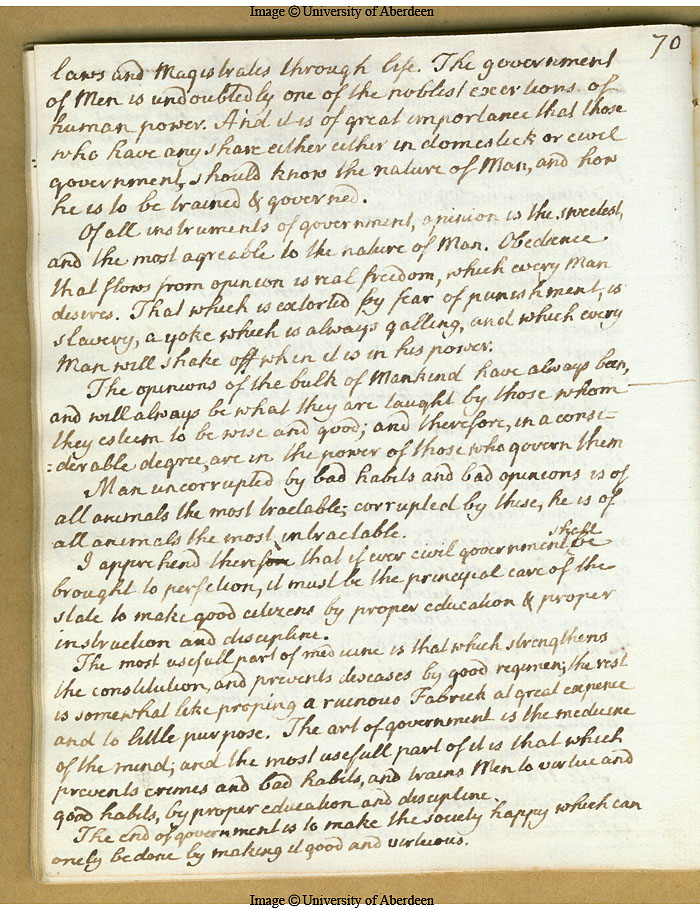 Image © University of Aberdeen
70
laws and Magistrates through life. The government
of Men is undoubtedly one of the noblest exertions of
human power. And it is of great importance that those
who have any share either either in domestick or civil
government, should know the nature of Man, and how
he is to be trained & governed.
Of all instruments of government, opinion is the sweetest,
and the most agreable to the nature of Man. Obedience
that flows from opinion is real freedom, which every Man
desires. That which is extorted by fear of punishment, is
slavery, a yoke which is always galling, and which every
Man will shake off when it is in his power.
The opinions of the bulk of Mankind have always been,
and will always be what they are taught by those whom
they esteem to be wise and good; and therefore, in a consi=
=derable degree, are in the power of those who govern them
Man uncorrupted by bad habits and bad opinions is of
all animals the most tractable; corrupted by these, he is of
all animals the most intractable.
I apprehend therefore that if ever civil government shall be
brought to perfection, it must be the principal care of the
state to make good citizens by proper education & proper
instruction and discipline.
The most usefull part of medicine is that which strengthens
the constitution, and prevents diseases by good regimen; the rest
is somewhat like proping a ruinous Fabrick at great expence
and to little purpose. The art of government is the medicine
of the mind; and the most usefull part of it is that which
prevents crimes and bad habits, and trains Men to virtue and
good habits, by proper education and discipline.
The end of government is to make the society happy which can
onely be done by making it good and virtuous.
Image © University of Aberdeen